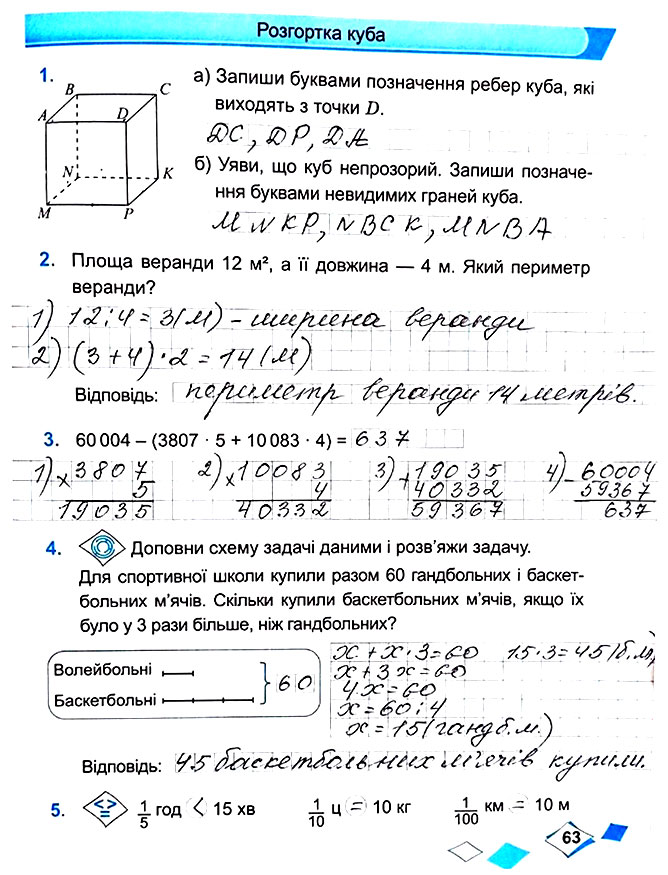 Розгортка куба
1.
B C
A D
N K
M P
а) Запиши буквами позначення ребер куба, які
виходять з точки D.
DC, DP, DA
б) Уяви, що куб непрозорий. Запиши позначе-
ння буквами невидимих граней куба.
MNKP, NBCK, MNBA
2. Площа веранди 12 м², а її довжина — 4 м. Який периметр
веранди?
1) 12:4=3(м) - ширина веранди
2) (3+4)·2=14(м)
Відповідь: периметр веранди 14 метрів.
3. 60 004 – (3807 · 5 + 10 083 · 4) = 637
1) × 3807 2) × 10083 3) + 19035 4) - 60004
5 4 40332 59367
19035 40332 59367 637
4. Доповни схему задачі даними і розв'яжи задачу.
Для спортивної школи купили разом 60 гандбольних і баскет-
больних м'ячів. Скільки купили баскетбольних м'ячів, якщо їх
було у 3 рази більше, ніж гандбольних?
Волейбольні
Баскетбольні
60
x+x·3=60 15·3=45(б.м)
x+3x=60
4x=60
x=60:4
x=15(гандб.м.)
Відповідь: 45 баскетбольних м'ячів купили.
5. < > = 1/5 год < 15 хв 1/10 ц = 10 кг 1/100 км = 10 м
63